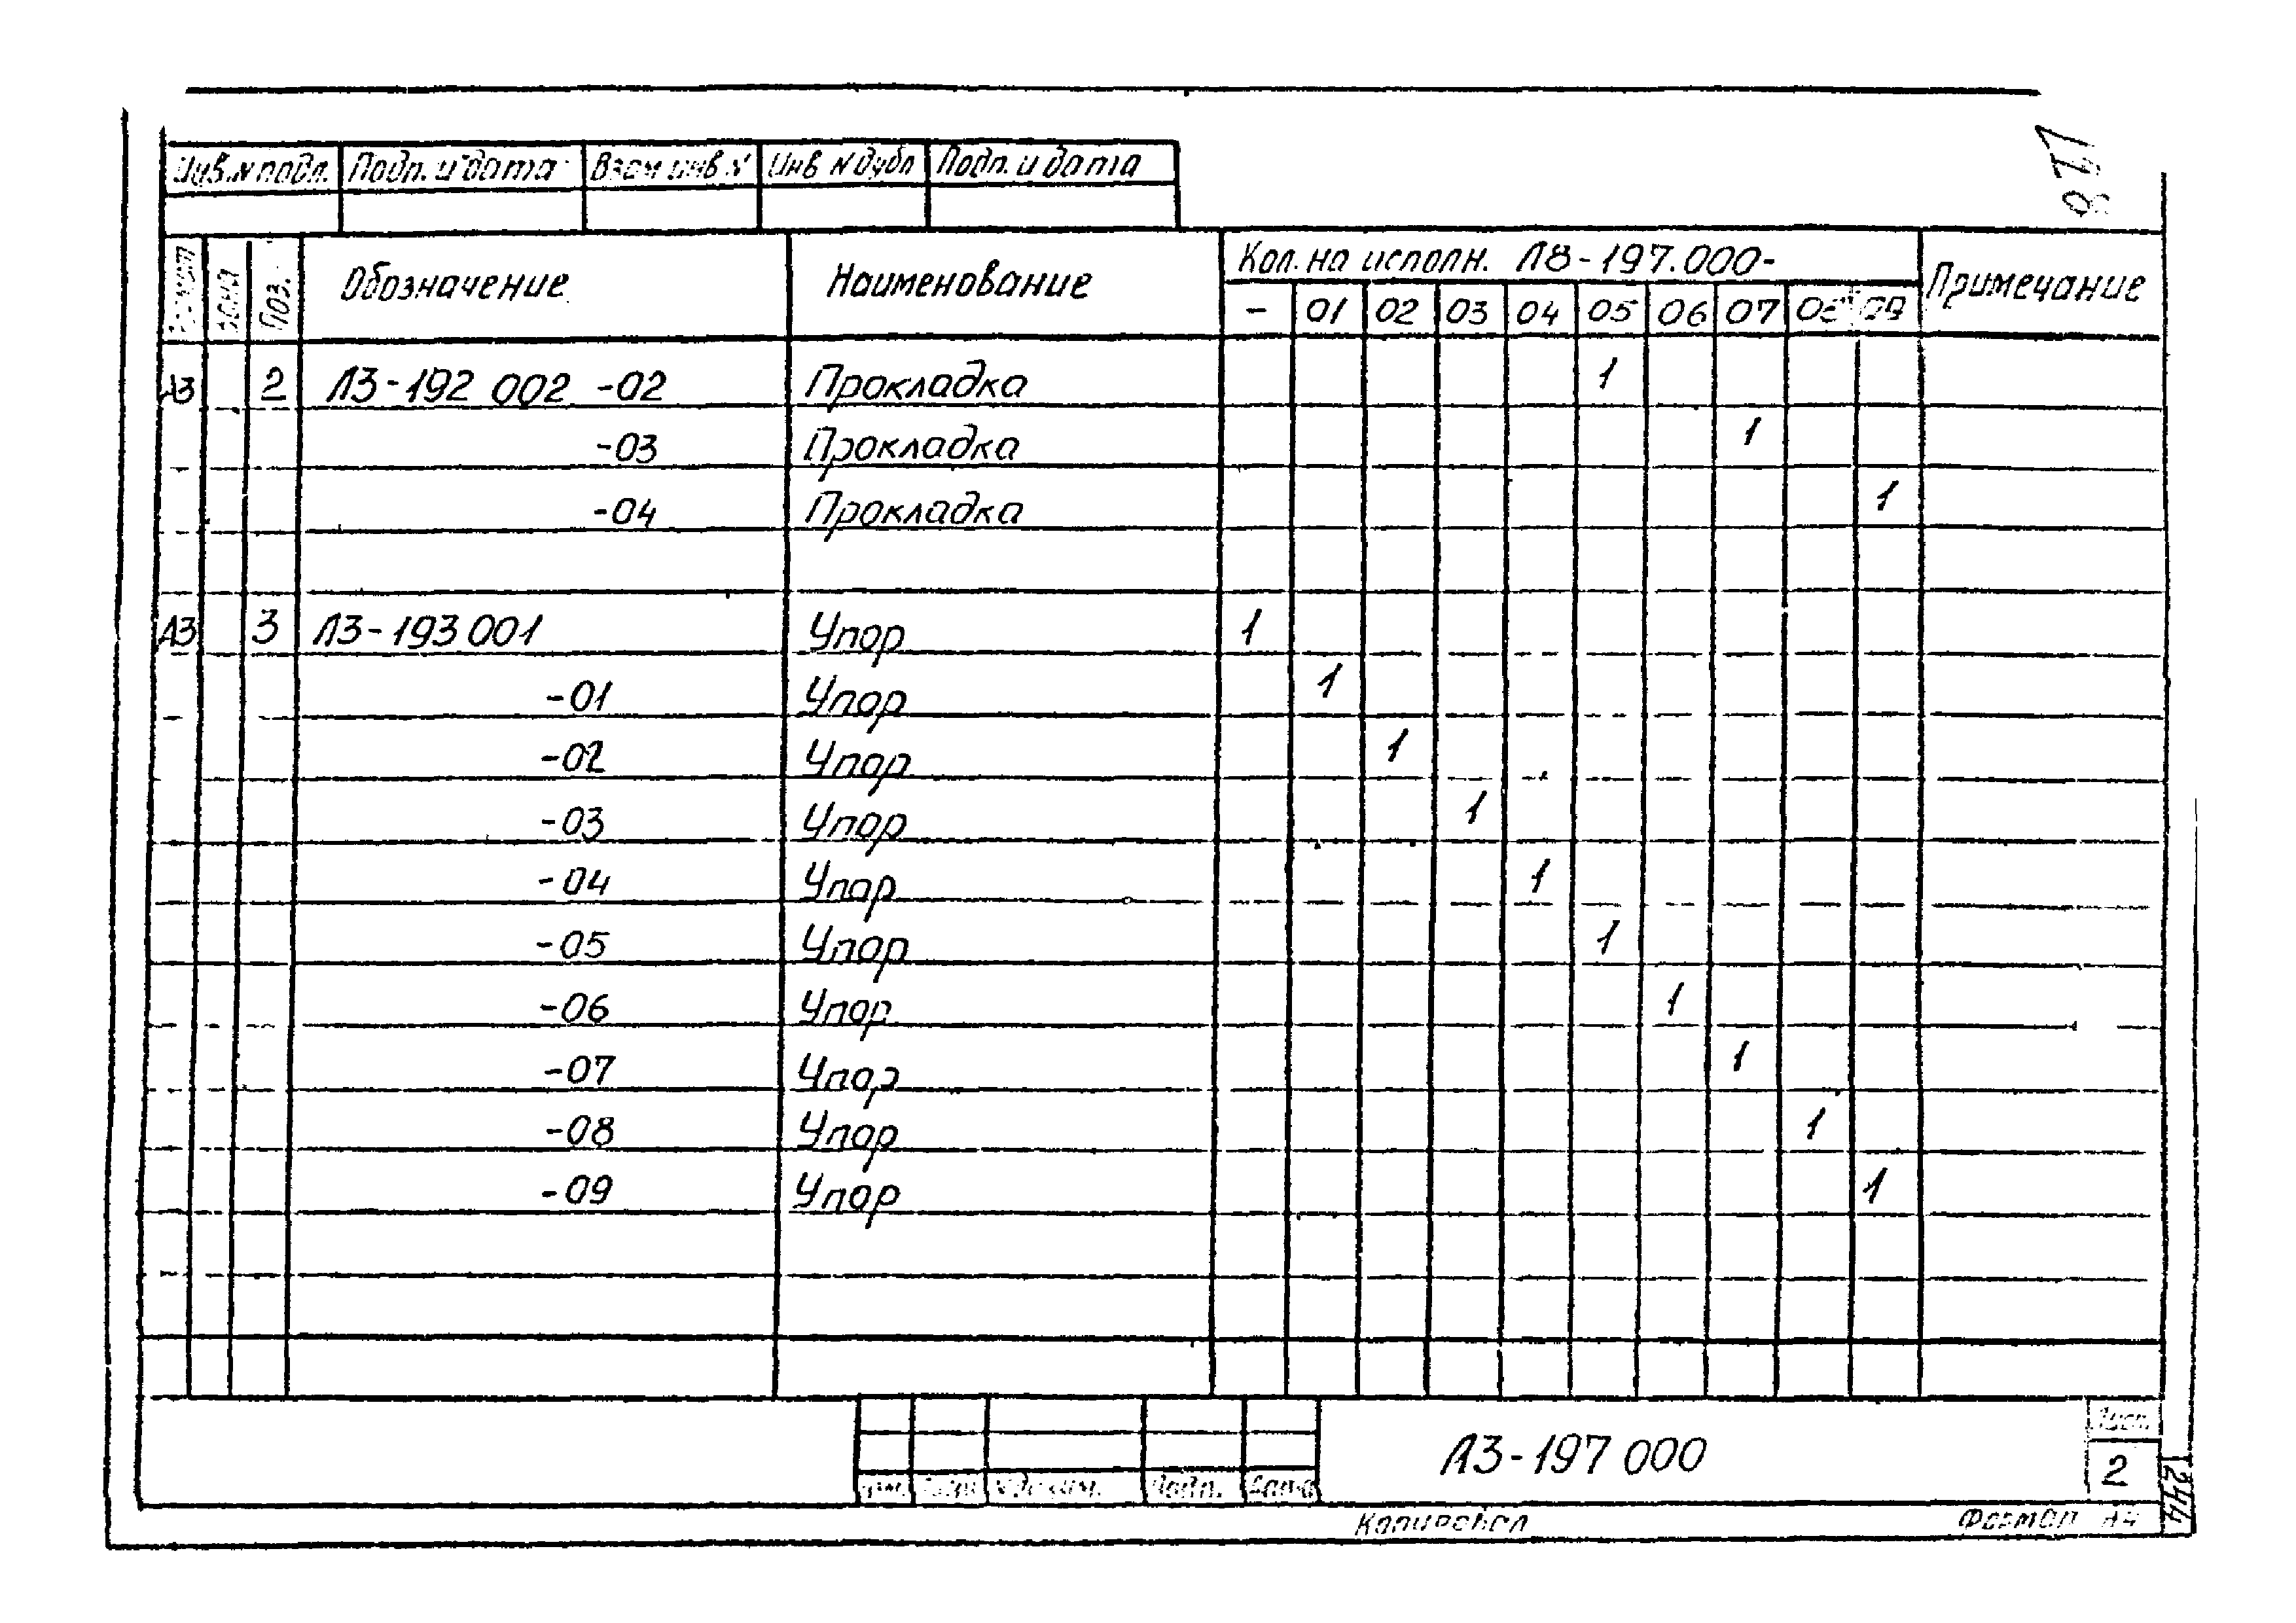 118
Инв.N подл. Подп. и дата Взам инв N Инв N дубл Подп. и дата
Формат Зона Поз. Обозначение Наименование Кол. на исполн. Л8-197.000- Примечание
- 01 02 03 04 05 06 07 08 09
А3 2 Л3-192 002 -02 Прокладка 1
-03 Прокладка 1
-04 Прокладка 1
А3 3 Л3-193 001 Упор 1
-01 Упор 1
-02 Упор 1
-03 Упор 1
-04 Упор 1
-05 Упор 1
-06 Упор 1
-07 Упор 1
-08 Упор 1
-09 Упор 1
Л3-197 000
Лист
2
Изм. Лист N докум. Подп. Дата
Копировал Формат А4
1244